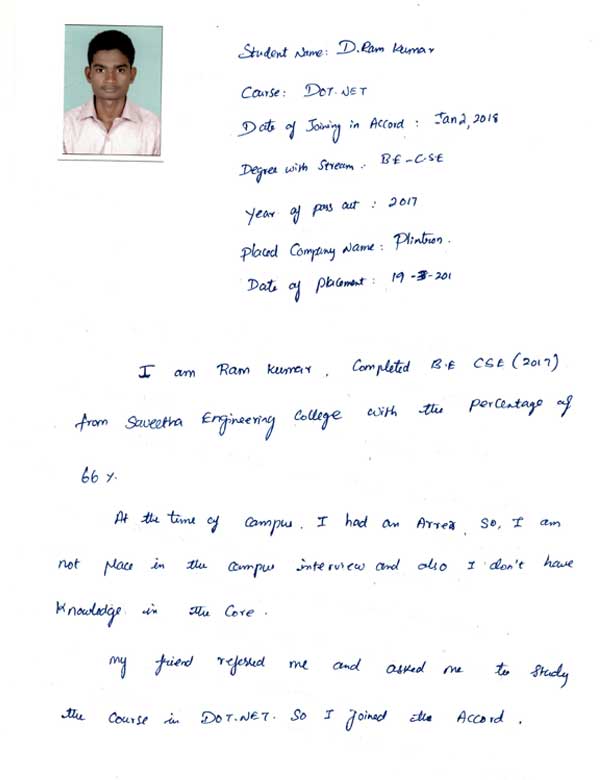 Student Name: D. Ram Kumar
Course: DOT.NET
Date of Joining in Accord : Jan 2, 2018
Degree with Stream : B.E - CSE
Year of pass out : 2017
Placed Company Name : Plintron.
Date of placement : 19-3-201
I am Ram Kumar, Completed B.E CSE (2017)
from Saveetha Engineering College with the percentage of
66 %.
At the time of campus, I had an Arrea, So, I am
not place in the campus interview and also I don't have
knowledge in the core.
My friend refered me and asked me to study
the course in DOT.NET. So I joined the Accord.